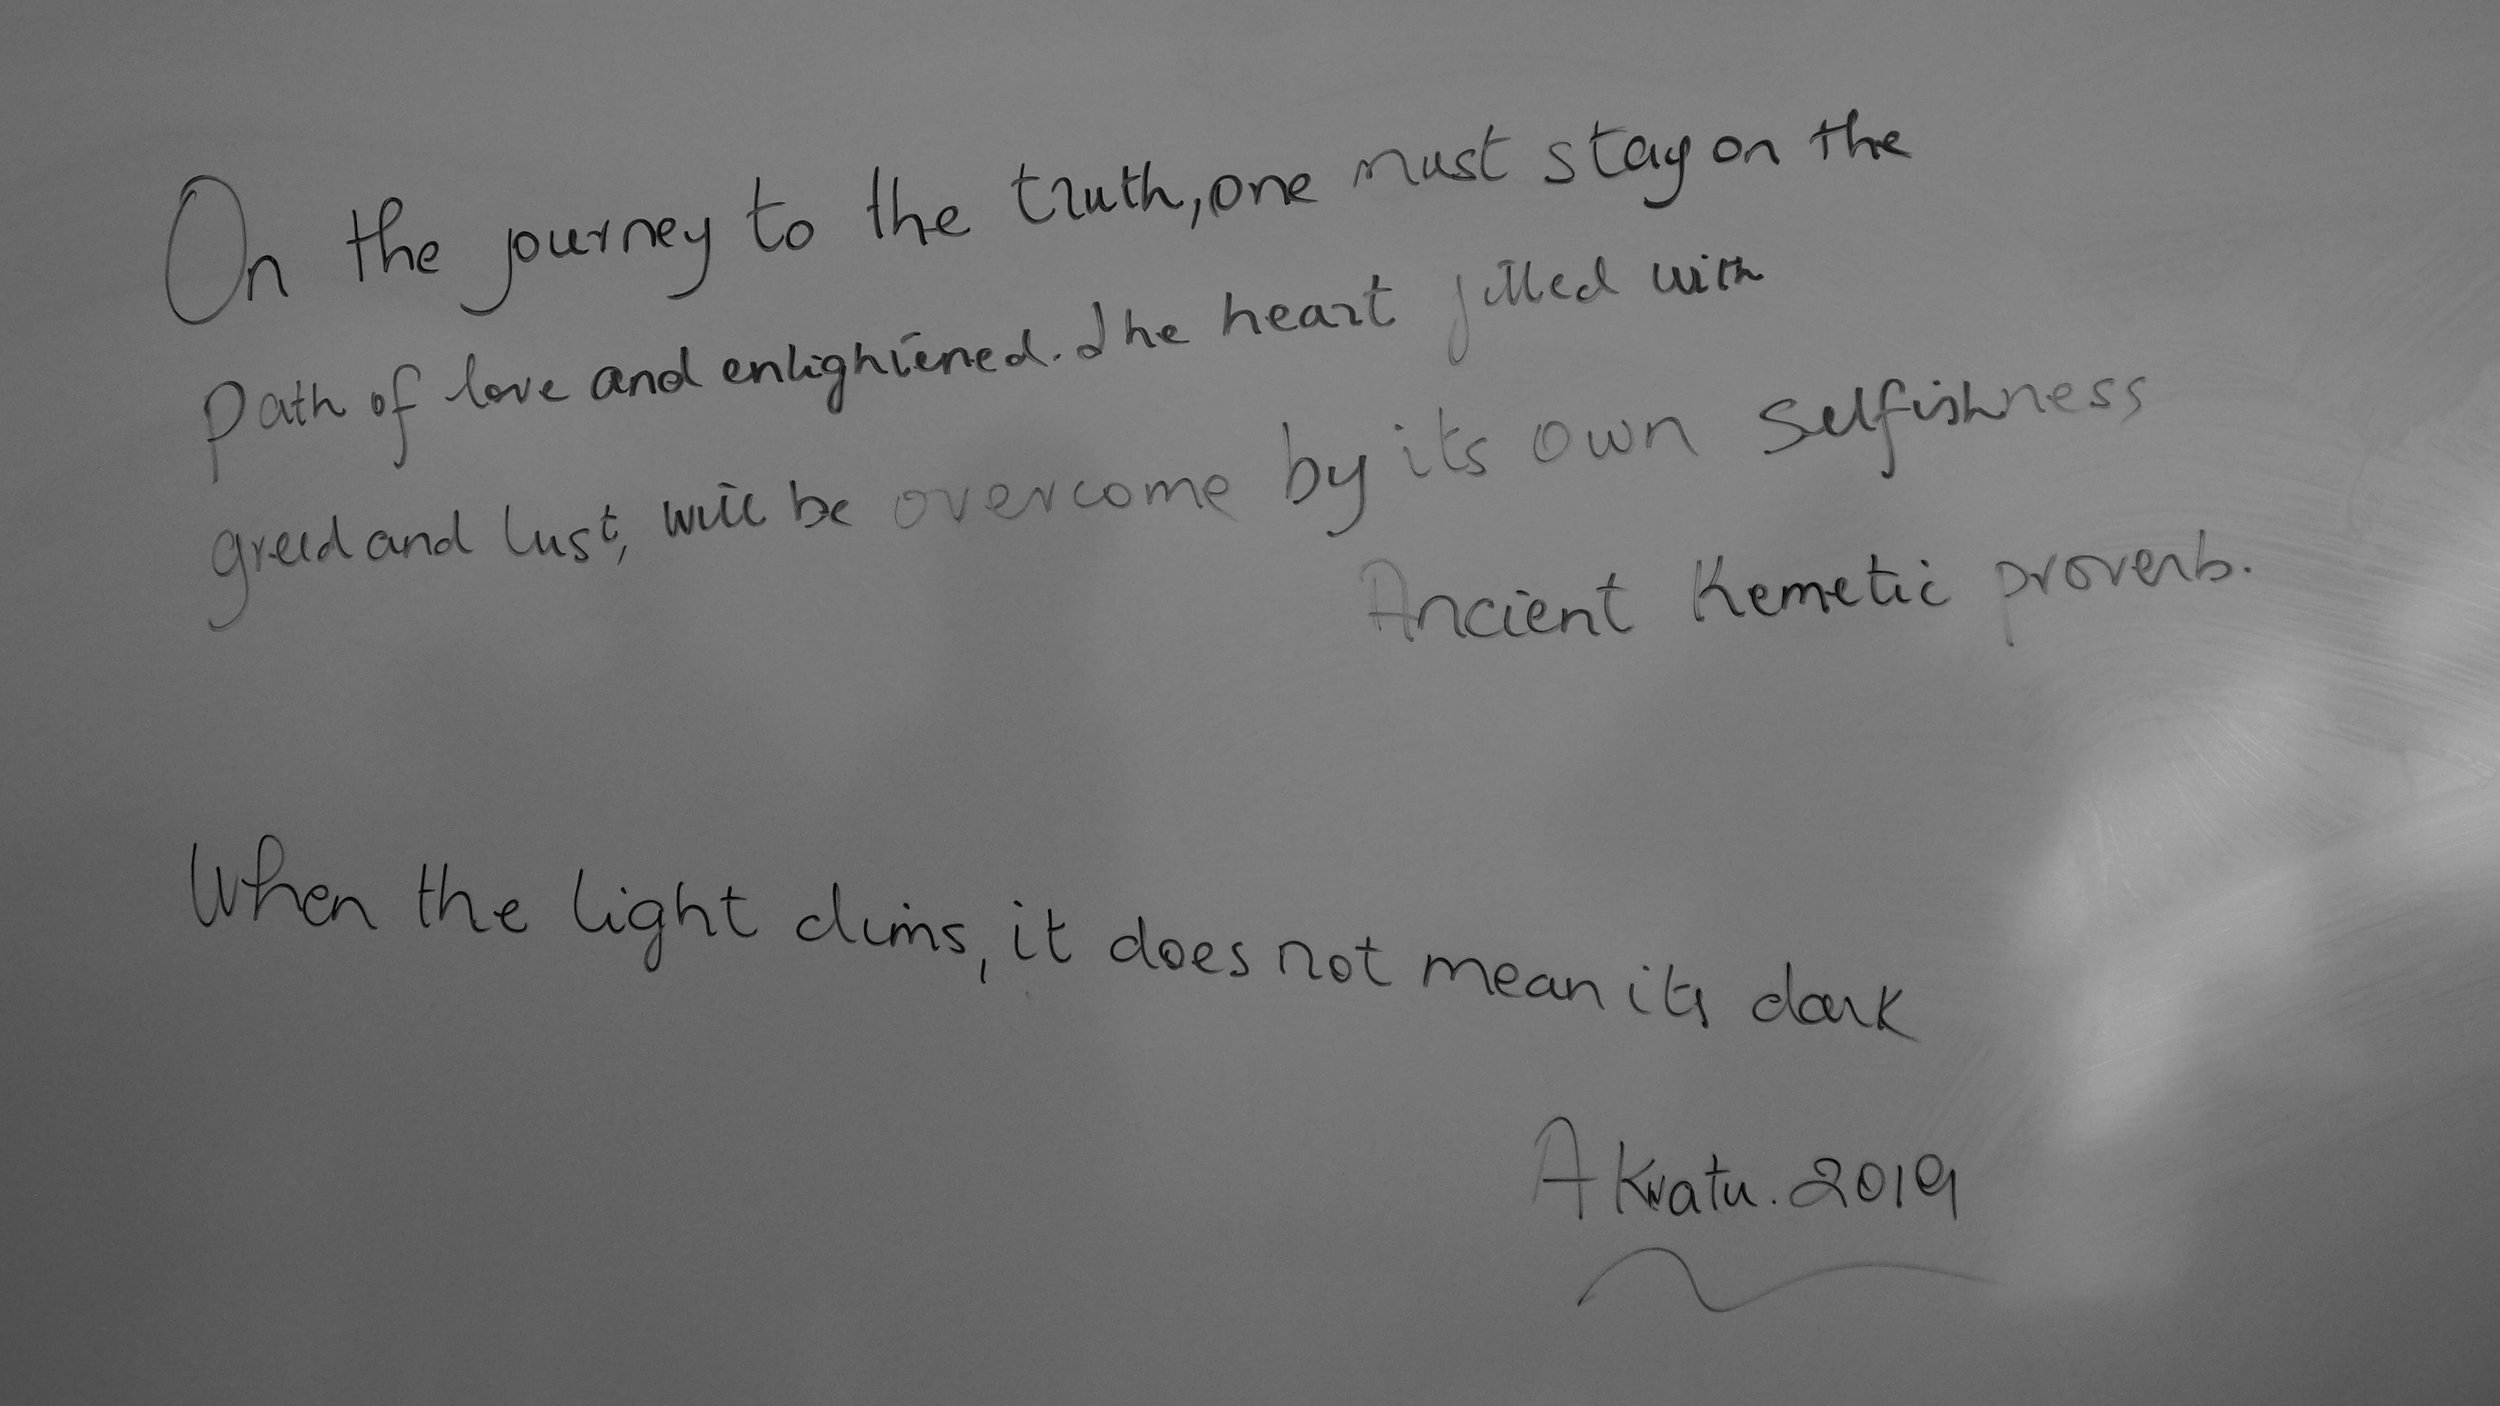 On the journey to the truth, one must stay on the
Path of love and enlightened. The heart filled with
greed and lust, will be overcome by its own selfishness
Ancient Kemetic proverb.
When the light dims, it does not mean its dark
A Kwatu. 2019